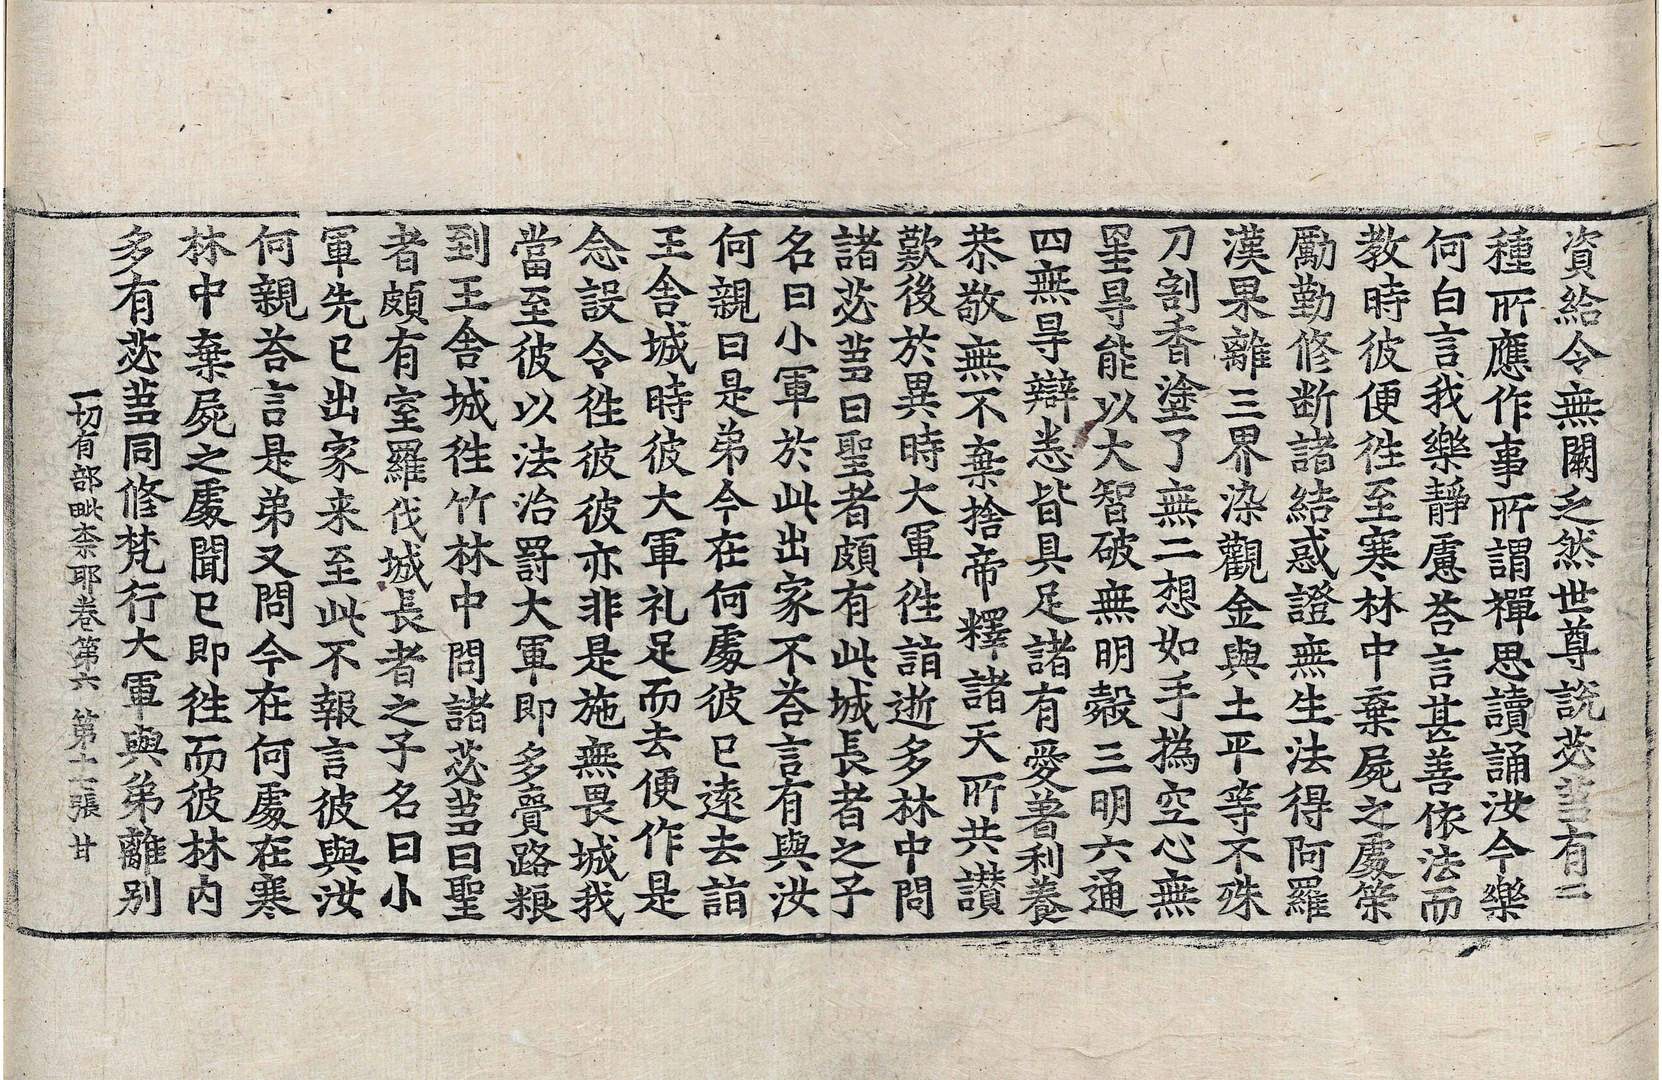 資給令無闕乏然世尊說苾芻有二
種所應作事所謂禪思讀誦汝今樂
何白言我樂靜慮荅言甚善依法而
教時彼便徃至寒林中棄屍之處策
勵勤修断諸結惑證無生法得阿羅
漢果離三界染觀金與土平等不殊
刀割香塗了無二想如手撝空心無
罣㝵能以大智破無明㲉三明六通
四無㝵辯悉皆具足諸有愛著利養
恭敬無不棄捨帝釋諸天所共讃
歎後於異時大軍徃詣逝多林中問
諸苾芻曰聖者頗有此城長者之子
名曰小軍於此出家不荅言有與汝
何親曰是弟今在何處彼已遠去詣
王舍城時彼大軍礼足而去便作是
念設令徃彼彼亦非是施無畏城我
當至彼以法治罸大軍即多賣路粮
到王舍城徃竹林中問諸苾芻曰聖
者頗有室羅伐城長者之子名曰小
軍先已出家来至此不報言彼與汝
何親荅言是弟又問今在何處在寒
林中棄屍之處聞已即徃而彼林內
多有苾芻同修梵行大軍與弟離别
一切有部毗柰耶卷第六 第十七張 甘